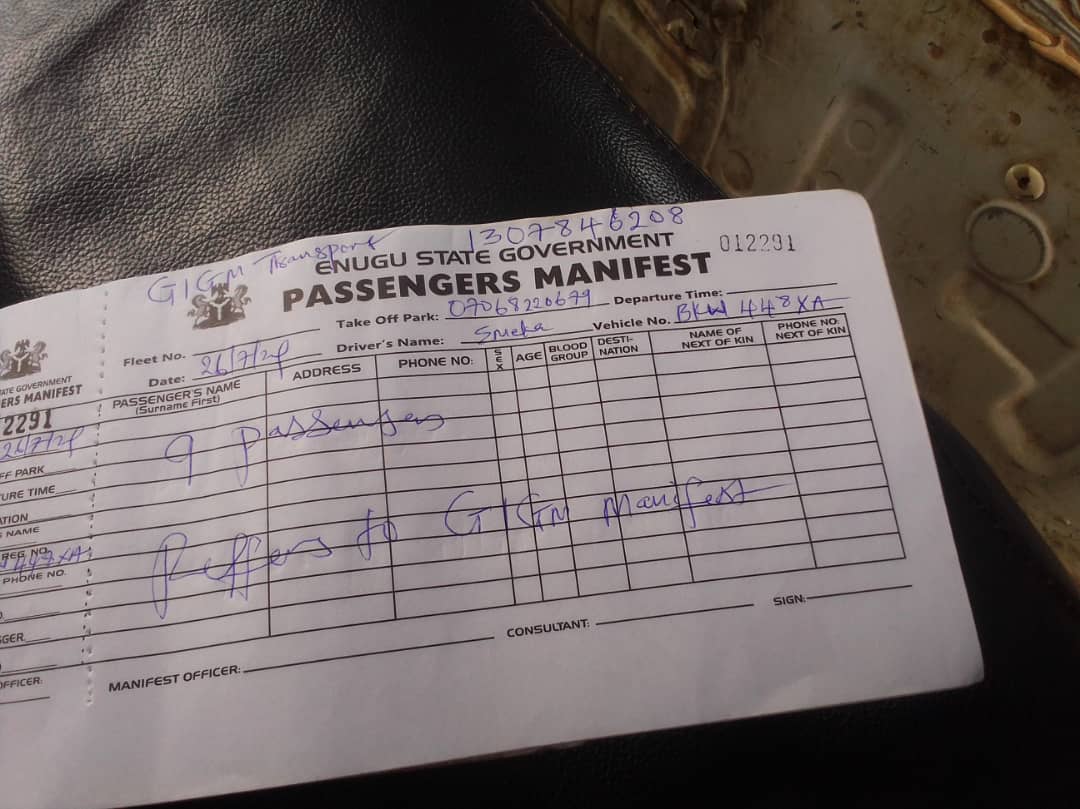 GIGM Transport 1307846208
ENUGU STATE GOVERNMENT 012291
PASSENGERS MANIFEST
Fleet No. Take Off Park: 07068220679 Departure Time:
Date: 26/7/21 Driver's Name: Smeka Vehicle No. BKW 448XA
PASSENGER'S NAME (Surname First) ADDRESS PHONE NO: SEX AGE BLOOD GROUP DESTI-NATION NAME OF NEXT OF KIN PHONE NO. NEXT OF KIN
9 passengers
Reffers to GIGM manifest
MANIFEST OFFICER: CONSULTANT: SIGN:
ATE GOVERNMENT
ERS MANIFEST
2291
26/7/21
FF PARK
URE TIME
ATION
NAME
REG NO.
PHONE NO.
GER
OFFICER: